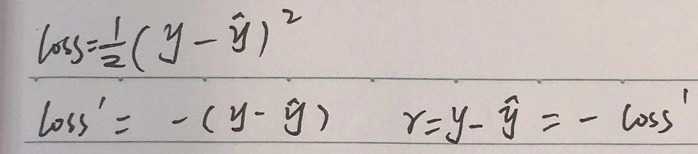 loss=½(y-ŷ)²
loss'= -(y-ŷ) r=y-ŷ=-loss'